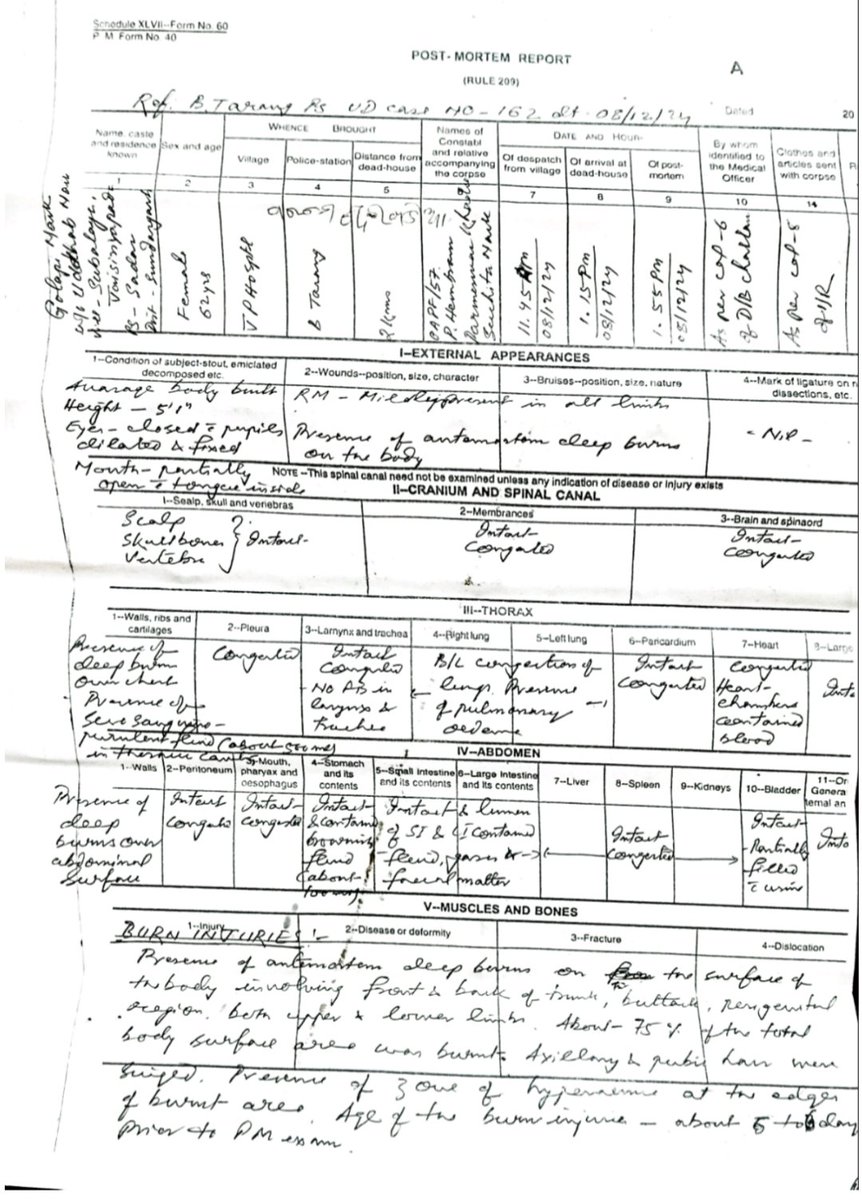 Schedule XLVII--Form No. 60
P M Form No. 40
POST-MORTEM REPORT
A
(RULE 209)
Ref. B. Tarang Ps UD case NO - 162 dt. 08/12/24
Dated 20
Name, caste and residence known
Sex and age
WHENCE BROUGHT
Village
Police-station
Distance from dead-house
Names of Constabl and relative accompanying the corpse
DATE AND HOUR
Of despatch from village
Of arrival at dead-house
Of post-mortem
By whom identified to the Medical Officer
Clothes and articles sent with corpse
1 2 3 4 5 7 8 9 10 14
Golapi Naik
w/o Uddhab Naik
PS - Sadar
Dist - Sundargarh
Female
62 yrs
V P Hospital
B Tarang
2 Kms
OAPF/57.
P. Hembram
Suchita Naik
11.45 AM
08/12/24
1.15 PM
08/12/24
1.55 PM
08/12/24
As per col-6
of D/B challan
As per col-5
of IIR
I--EXTERNAL APPEARANCES
1--Condition of subject-stout, emiciated decomposed etc.
2--Wounds--position, size, character
3--Bruises--position, size, nature
4--Mark of ligature on n
dissections, etc.
Average body built
Height - 5'1"
Eyes - closed c pupils
dilated & fixed
Mouth - partially
open c tongue inside
RM - Mildly present in all limbs
Presence of antemortem deep burns
on the body
- Nil -
NOTE --This spinal canal need not be examined unless any indication of disease or injury exists
II--CRANIUM AND SPINAL CANAL
I--Sealp, skull and venebras
2--Membrances
3--Brain and spinaord
Scalp
Skull bones } Intact
Vertebra
Intact
Congested
Intact
Congested
III--THORAX
1--Walls, ribs and cartilages
2--Pleura
3--Larnynx and trachea
4--Right lung
5--Left lung
6--Paricardium
7--Heart
8--Large
Presence of
deep burn
over chest
Presence of
Sero sanguino-
purulent fluid (about 500 ml)
in thoracic cavity
Congested
Intact
Congested
- No FB in
larynx &
trachea
B/L congestion of
lungs. Presence
of pulmonary
oedema
Intact
Congested
Congested
Heart-
chambers
contained
blood
IV--ABDOMEN
1--Walls
2--Peritoneum
3--Mouth, pharyax and oesophagus
4--Stomach and its contents
5--Small Intestine and its contents
6--Large Intestine and its contents
7--Liver
8--Spleen
9--Kidneys
10--Bladder
11--Or
Genera
temal an
Presence of
deep
burns over
abdominal
Surface
Intact
Congested
Intact
Congested
Intact
& contained
brownish
fluid
(about
100 ml)
Intact & lumen
of SI & LI contained
fluid, gases &
faecal matter
Intact
Congested
Intact
- Partially
filled
c urine
V--MUSCLES AND BONES
1--Injury
2--Disease or deformity
3--Fracture
4--Dislocation
BURN INJURIES :-
Presence of antemortem deep burns on the surface of
the body involving front & back of trunk, buttock, perigenital
region, both upper & lower limbs. About - 75 % of the total
body surface area was burnt. Axillary & pubic hair were
Singed. Presence of zone of hyperaemia at the edges
of burnt area. Age of the burn injuries - about 5 to 6 day
Prior to PM exam.